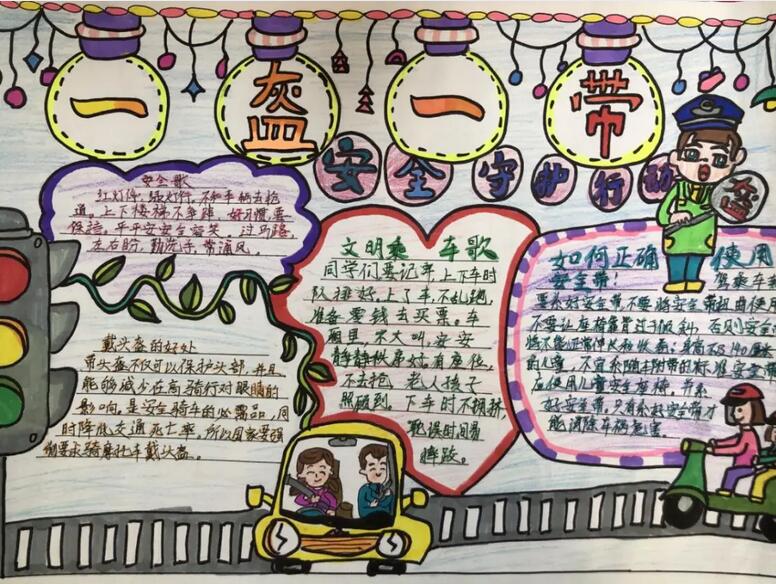 一盔一带
安全守护行动
盔
安全歌
红灯停，绿灯行，不和车辆去抢
道。上下楼梯不奔跑，好习惯要
保持。平平安安会笑，过马路，
左右盼，勤洗手，常通风。
戴头盔的好处
带头盔不仅可以保护头部，并且
能够减少在高骑行对眼睛的
影响，是安全骑车的必需品，同
时降低交通死亡率，所以国家要强
制要求骑摩托车戴头盔。
文明乘车歌
同学们要记牢，上下车时
队排好。上了车，不乱跑，
准备零钱去买票。车
厢里，不大叫，安安
静静秩序好，有座位，
不去抢，老人孩子
照顾到，下车时不拥挤，
耽误时间易
摔跤。
如何正确使用
安全带！驾乘车
要系好安全带，不要将安全带扭曲使用
不要让座椅靠背过于倾斜，否则安全
将不能正常伸长和收卷；身高不足140厘米
的儿童，不宜系随车附带的标准安全带
应使用儿童安全座椅，并系
好安全带，只有系好安全带才
能消除车祸危害。